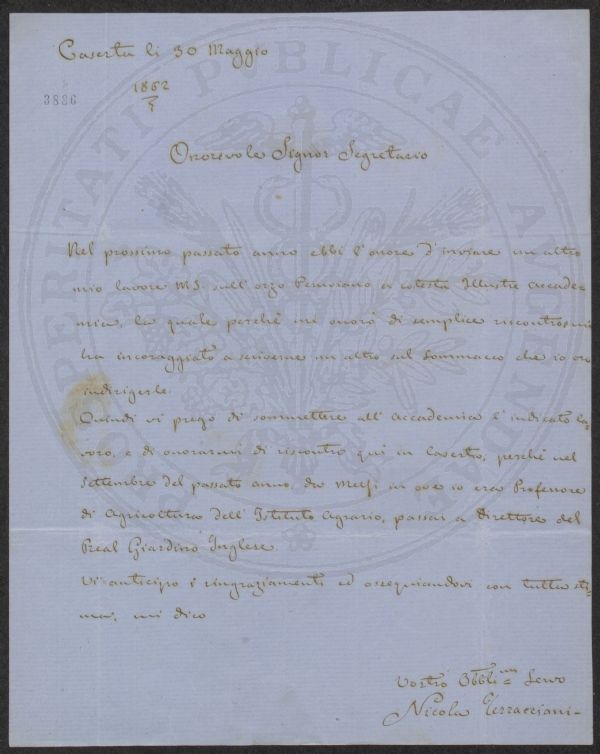 Caserta li 30 Maggio
1862
3886
Onorevole Signor Segretario
Nel prossimo passato anno ebbi l'onore d'inviare un altro
mio lavoro MS. sull'orzo Peruviano a cotesta Illustre Accade-
mia, la quale perchè mi onorò di semplice riscontro, mi
ha incoraggiato a scriverne un altro sul Sommacco che io oso
indirigerle.
Quindi vi prego di sommettere all'Accademia l'indicato la-
voro, e di onorarmi di riscontro qui in Caserta, perchè nel
Settembre del passato anno, da Melfi in ove io era Professore
di Agricoltura dell'Istituto Agrario, passai a Direttore del
Real Giardino Inglese.
Vi anticipo i ringraziamenti ed ossequiandovi con tutta sti-
ma, mi dico
Vostro Obbli=mo Servo
Nicola Terracciani
PROSPERITATI PUBLICAE AUGENDAE